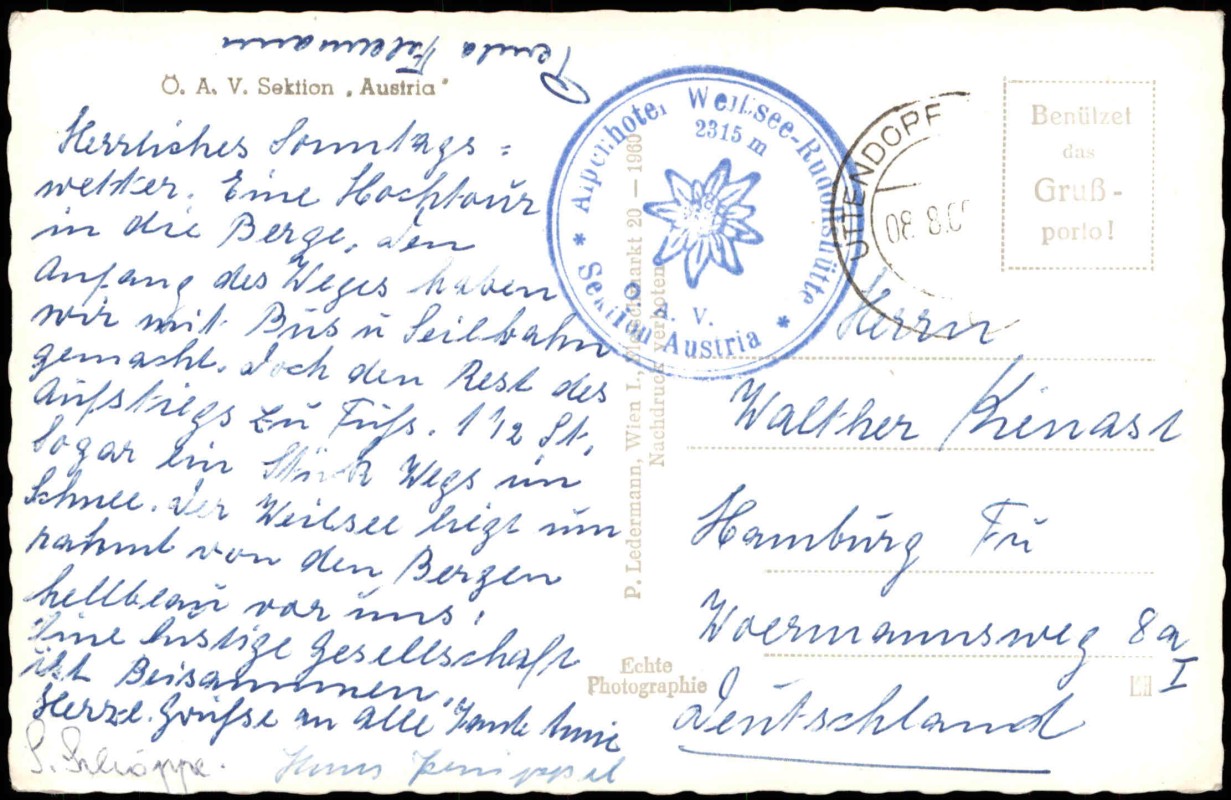 Ö. A. V. Sektion „Austria"
Herrliches Sonntags =
wetter. Eine Hochtour
in die Berge, den
Anfang des Weges haben
wir mit Bus u Seilbahn
gemacht. Doch den Rest des
Aufstiegs zu Fuß. 1 1/2 St,
Sogar ein Stück Wegs im
Schnee. Der Weißsee liegt um
rahmt von den Bergen
hellblau vor uns!
Eine lustige Gesellschaft
ist Beisammen.
Herzl. Grüße an alle Tante Annie
Hans
Alpenhotel Weißsee-Rudolfshütte
2315 m
Ö. A. V.
* Sektion Austria *
P. Ledermann, Wien I., Fleischmarkt 20 — 1960
Nachdruck verboten
Echte
Photographie
UTTENDORF
08. 8.60
Benützet
das
Gruß-
porto!
Herrn
Walther Kienast
Hamburg Fu
Woermannsweg 8a
I
Deutschland